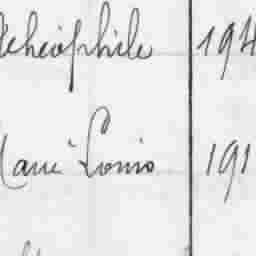 Théophile 194
Marie Louis 191